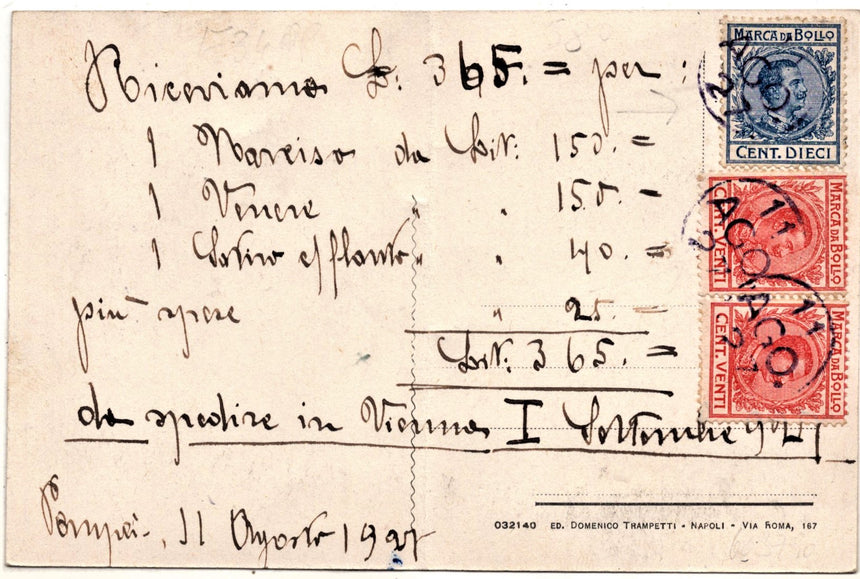 Riceviamo L. 365. = per:
1 Narciso da Lit: 150. =
1 Venere " " 150. =
1 Satiro e flauto " " 40. =
più spese " 25 =
Lit: 365. =
da spedire in Vienna I Settembre 927
Pompei, 11 Agosto 1927
032140 ED. DOMENICO TRAMPETTI - NAPOLI - VIA ROMA, 167
MARCA DA BOLLO
CENT. DIECI
AGO.
27
MARCA DA BOLLO
CENT. VENTI
11
AGO.
27
MARCA DA BOLLO
CENT. VENTI
11
AGO.
27